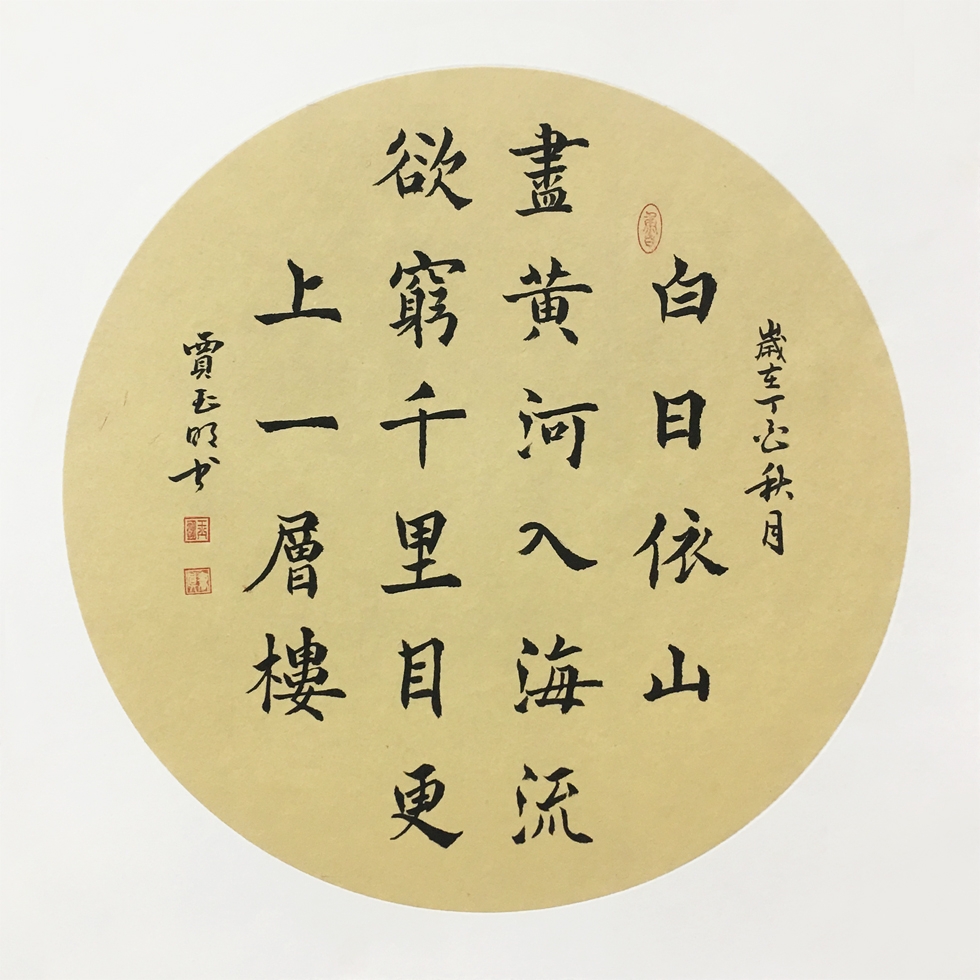 歲在丁酉秋月
白日依山
盡黄河入海流
欲窮千里目更
上一層樓
賈玉明书